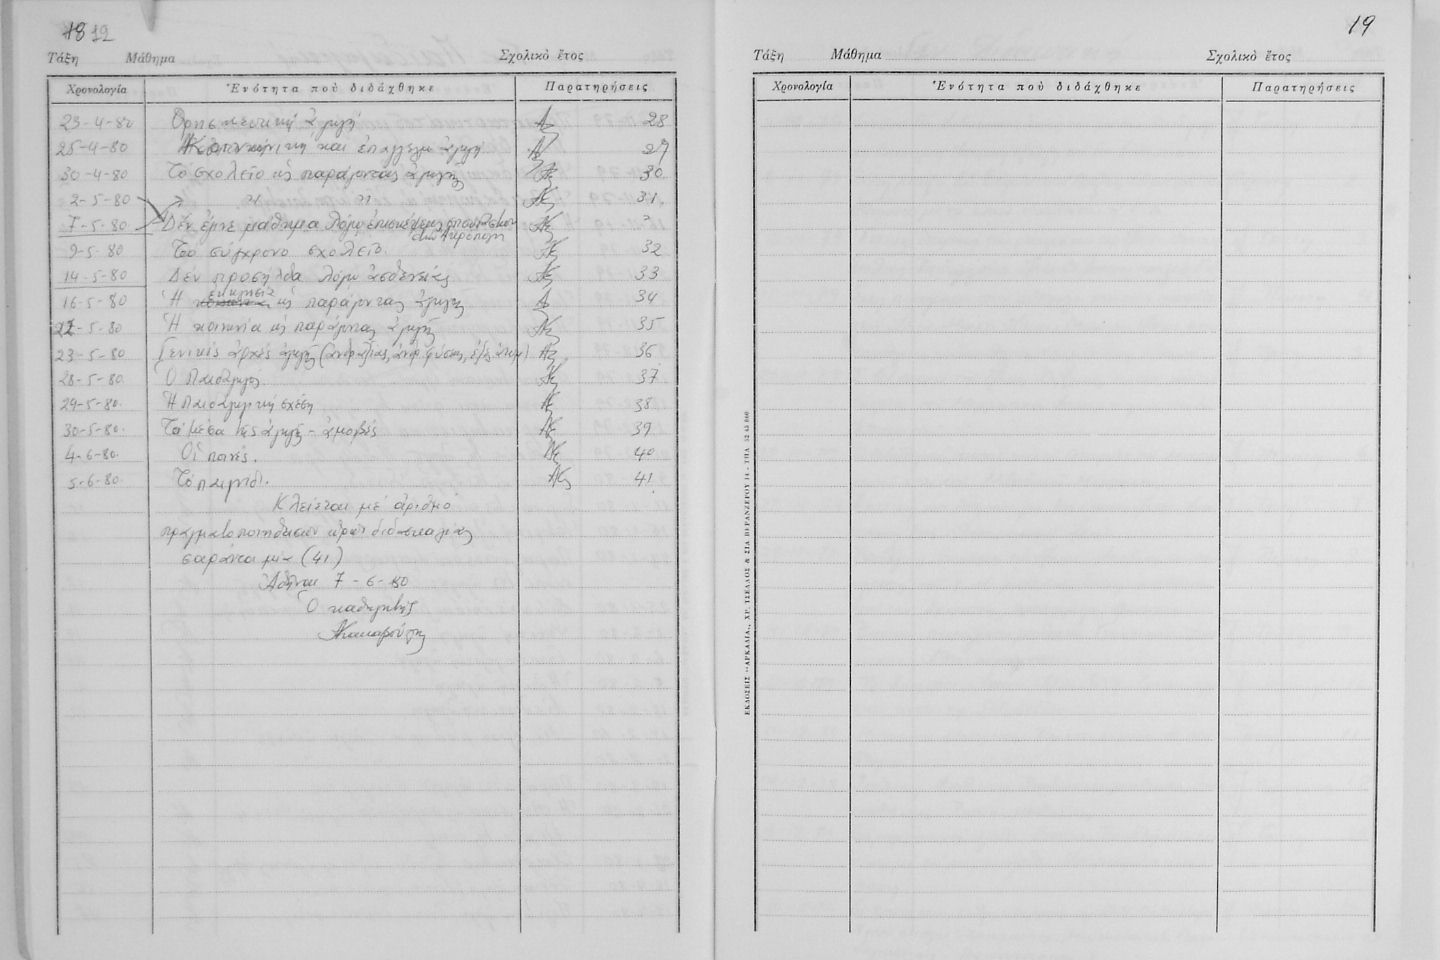 12
Τάξη Μάθημα Σχολικὸ ἔτος
Χρονολογία Ἑνότητα ποὺ διδάχθηκε Παρατηρήσεις
23-4-80 Θρησκευτική ἀγωγή 28
25-4-80 Κοινωνική καί ἐπαγγελμ ἀγωγή 29
30-4-80 Τό σχολεῖο ὡς παράγοντας ἀγωγῆς 30
2-5-80 " " " 31.
7-5-80 Δέν ἔγινε μάθημα λόγω ἐπισκέψεως σπουδαστῶν
στήν Ἀκρόπολη
9-5-80 Τό σύγχρονο σχολεῖο. 32
14-5-80 Δέν προσῆλθα λόγω ἀσθενείας 33
16-5-80 Ἡ ἐκκλησία ὡς παράγοντας ἀγωγῆς 34
22-5-80 Ἡ κοινωνία ὡς παράγοντας ἀγωγῆς 35
23-5-80 Γενικές ἀρχές ἀγωγῆς 36
28-5-80 Ὁ Παιδαγωγός. 37
29-5-80. Ἡ Παιδαγωγική σχέση 38
30-5-80. Τά μέσα τῆς ἀγωγῆς - ἀμοιβές 39
4-6-80 Οἱ ποινές. 40
5-6-80. Τό παιχνίδι. 41
Κλείεται μέ ἀριθμό
πραγματοποιηθεισῶν ὡρῶν διδασκαλίας
σαράντα μία (41)
Ἀθῆναι 7-6-80
Ὁ καθηγητής
19
Τάξη Μάθημα Σχολικὸ ἔτος
Χρονολογία Ἑνότητα ποὺ διδάχθηκε Παρατηρήσεις
ΕΚΔΟΣΕΙΣ "ΑΡΚΑΔΙΑ,, ΧΡ. ΤΣΕΛΛΟΣ & ΣΙΑ ΒΕΡΑΝΖΕΡΟΥ 14 - ΤΗΛ.